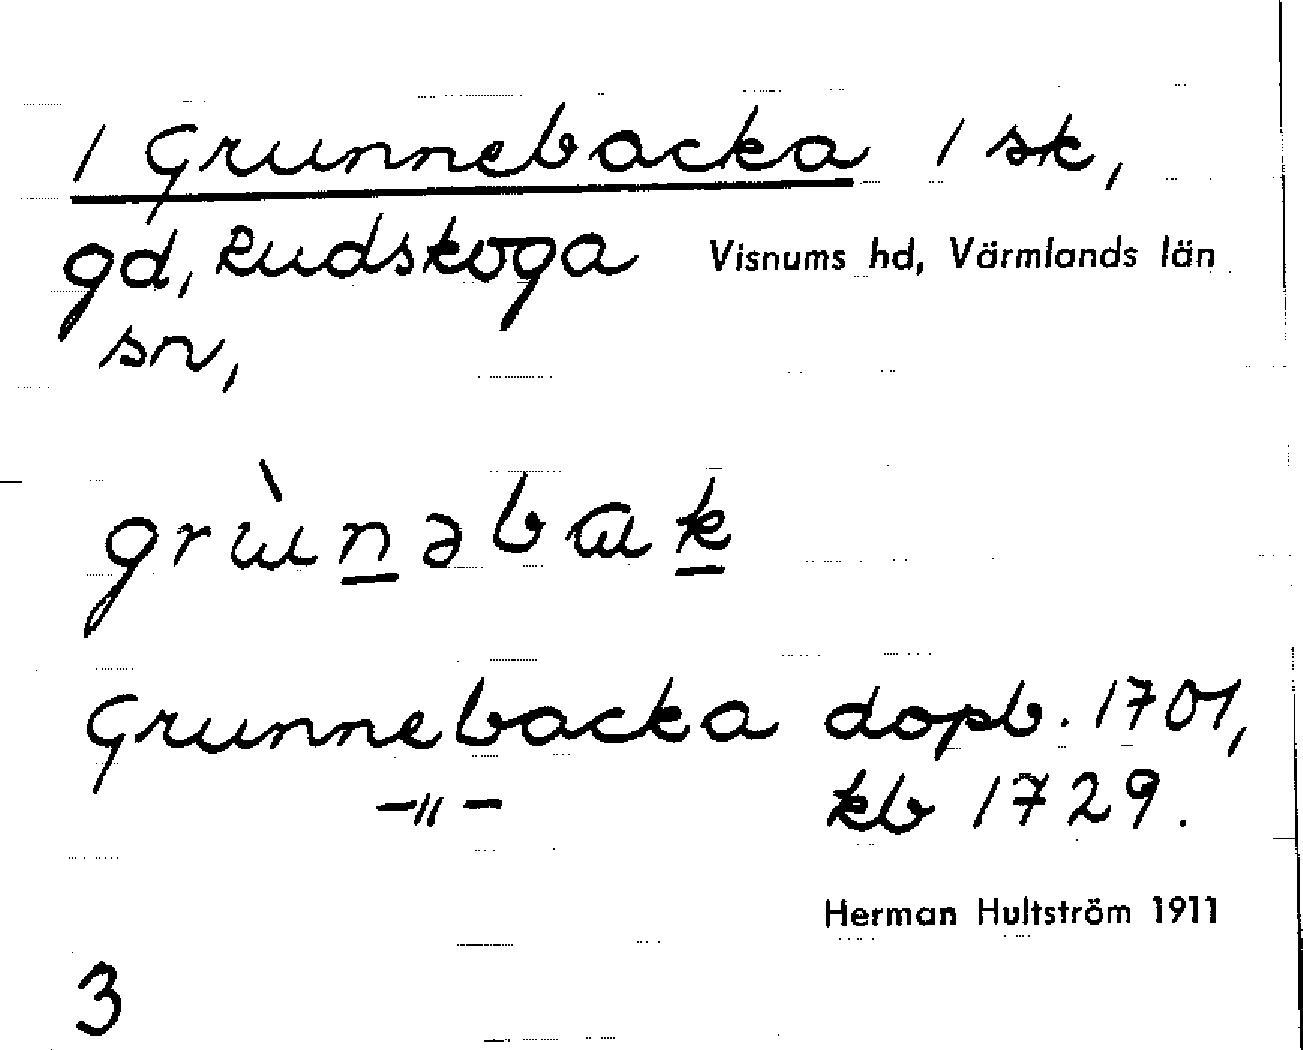 / Grunnebacka / sk,
gd, Rudskoga Visnums hd, Värmlands län
sn,
grùn̲əbɑk̲
Grunnebacka dopb. 1701,
—〃— kb 1729.
Herman Hultström 1911
3